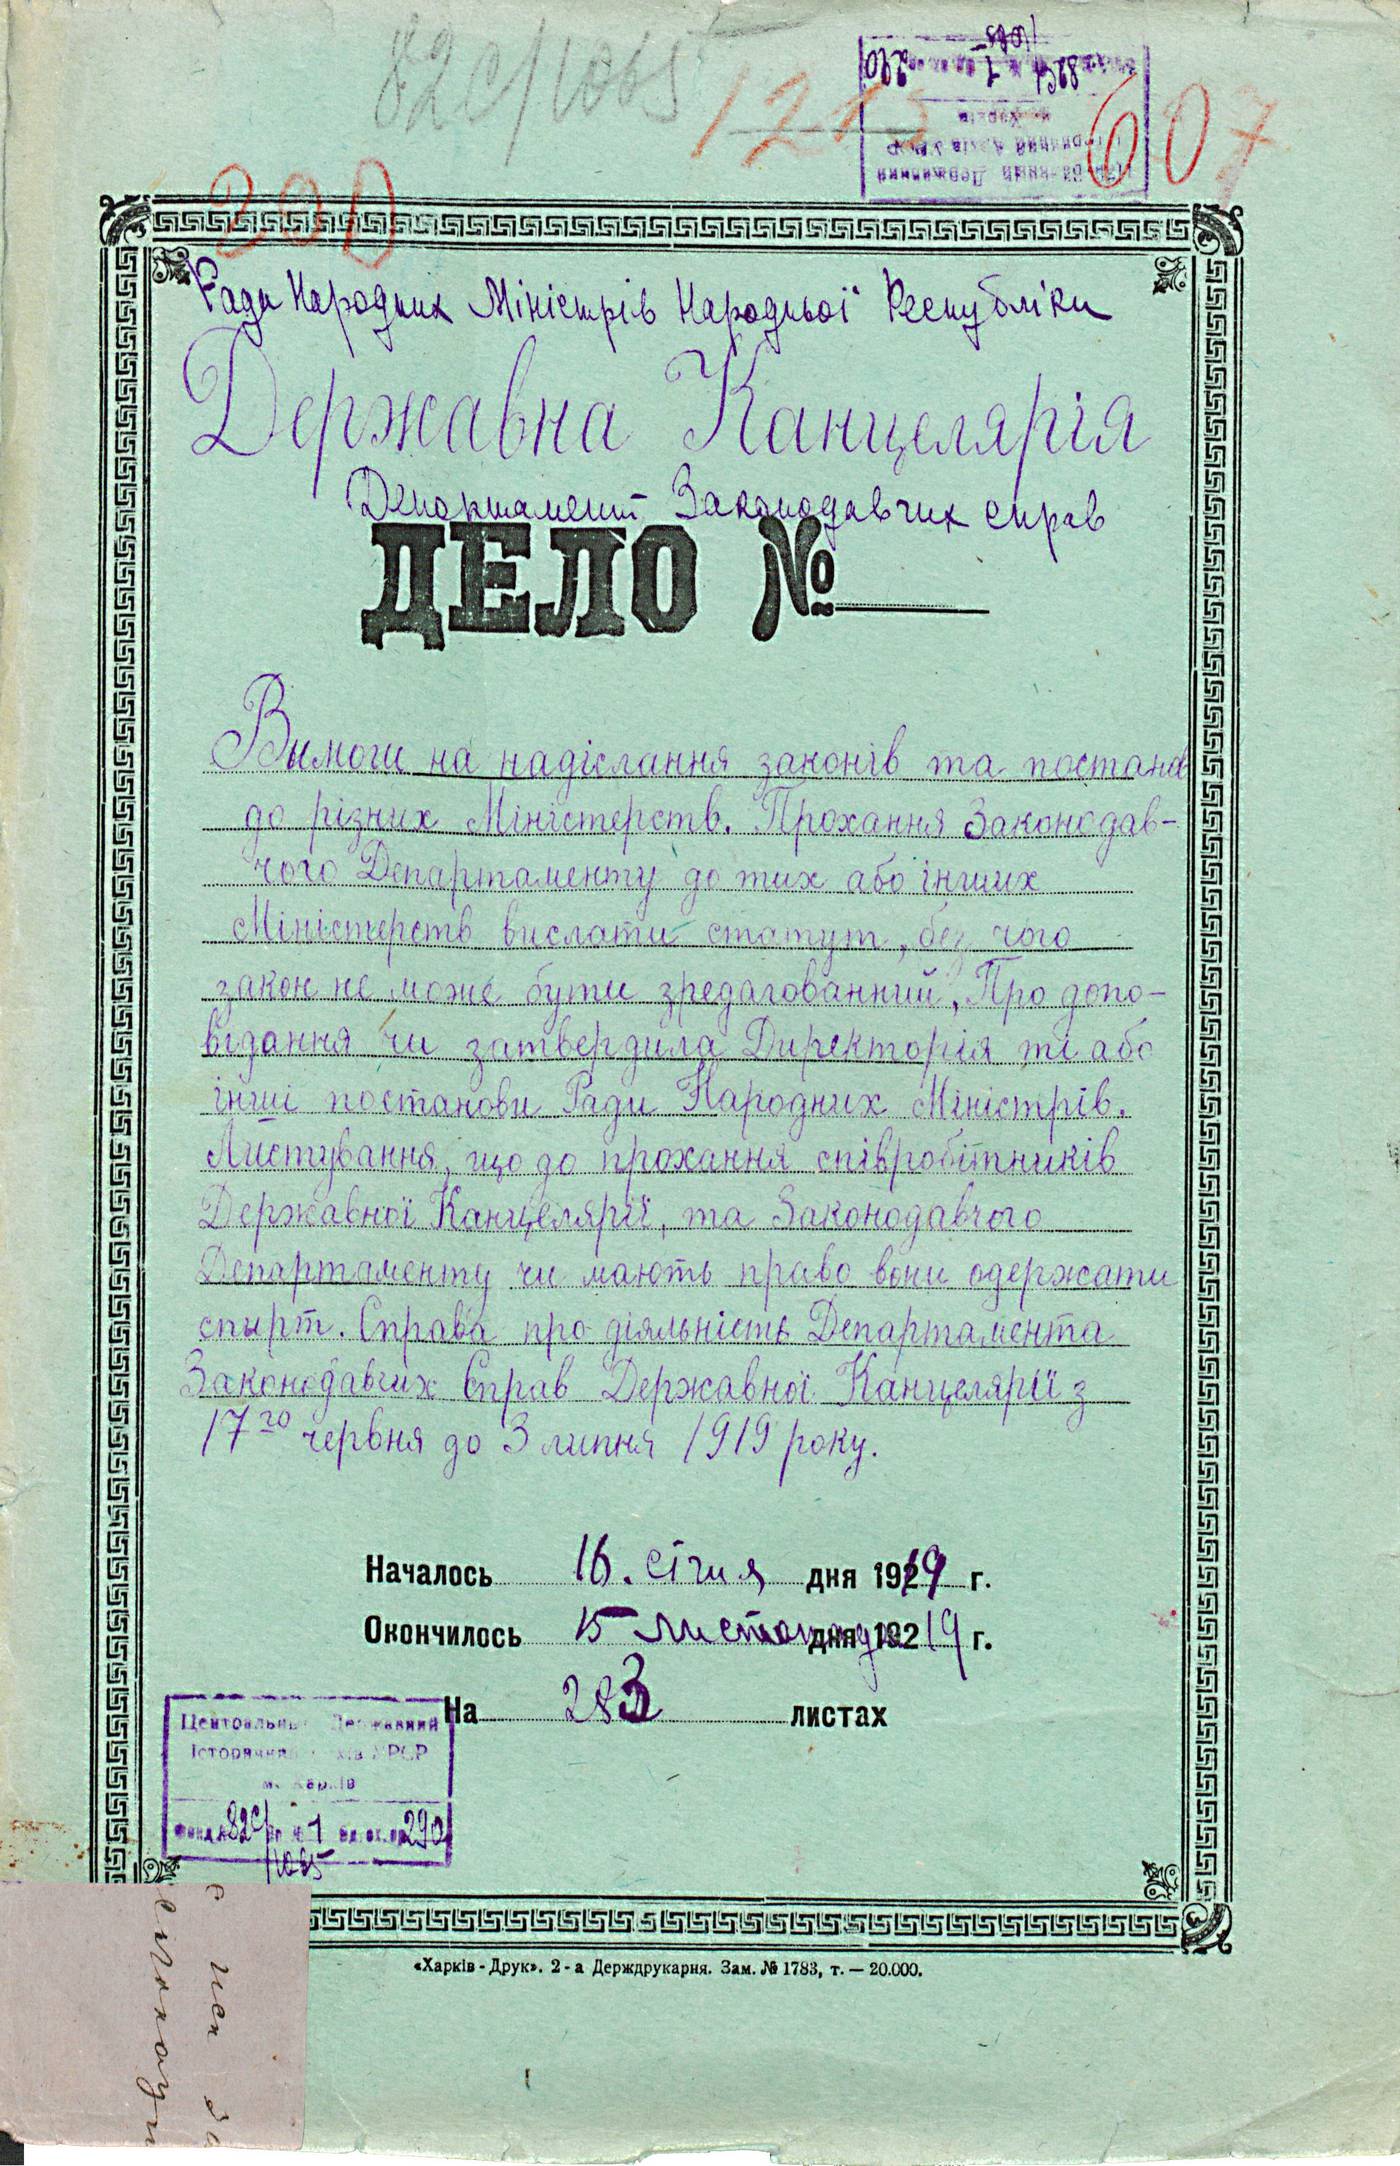 82с/1065
1215
607
200
Рада Народних Міністрів Народньої Республіки
Державна Канцелярія
Департамент Законодавчих справ
ДЕЛО №
Вымоги на надіслання законів та постанов
до різних Міністерств. Прохання Законодав-
чого Департаменту до тих або інших
Міністерств вислати статут, без чого
закон не може бути зредагованний, Про допо-
відання чи затвердила Директорія ті або
інші постанови Ради Народних Міністрів.
Листування, що до прохання співробітників
Державної Канцелярії, та Законодавчого
Департаменту чи мають право вони одержати
спырт. Справа про діяльність Департамента
Законодавчих Справ Державної Канцелярії з
17го червня до 3 липня 1919 року.
Началось 16. січня дня 1919 г.
Окончилось 15 листопада дня 19219 г.
На 283 листах
Центральный Державний
Історичний Архів УРСР
м. Харків
Фонд № 82с/1065 оп № 1 од. зб. № 290
«Харків - Друк». 2 - а Держдрукарня. Зам. № 1783, т. — 20.000.